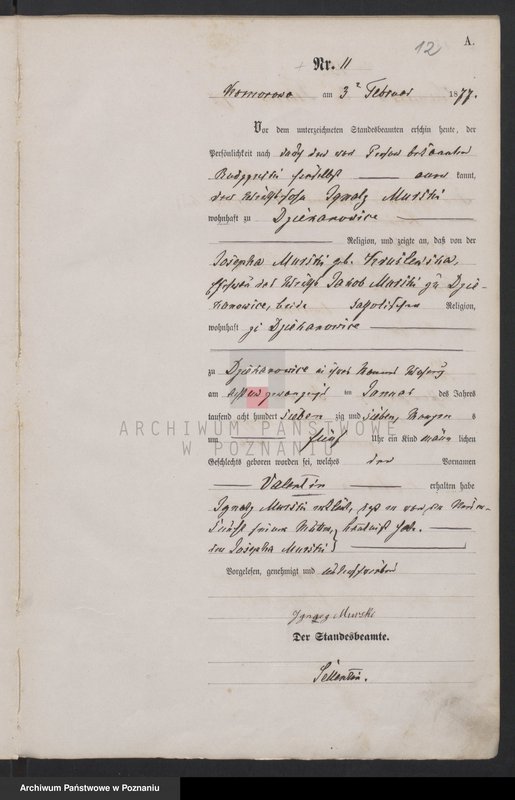 12
A.
Nr. 11
Komorowo am 3 Februar 1877.
Vor dem unterzeichneten Standesbeamten erschien heute, der
Persönlichkeit nach durch den von Person bekannten
kannt,
den Wirthssohn Ignatz Murski
wohnhaft zu Dziekanowice
Religion, und zeigte an, daß von der
Josepha Murski geb.
Ehefrau des Wirths Jakob Murski zu Dzie-
kanowice, beide katholischer Religion,
wohnhaft zu Dziekanowice
zu Dziekanowice in ihres Mannes Wohnung
am acht und zwanzigsten Januar des Jahres
tausend acht hundert sieben zig und sieben, Morgens
um fünf Uhr ein Kind männlichen
Geschlechts geboren worden sei, welches den Vornamen
Valentin erhalten habe
Ignatz Murski erklärt, daß er von der Nieder-
kunft seiner Mutter, Kenntniß habe.
der Josepha Murski
Vorgelesen, genehmigt und unterschrieben
Ignacy Murski
Der Standesbeamte.
ARCHIWUM PAŃSTWOWE
W POZNANIU
Archiwum Państwowe w Poznaniu